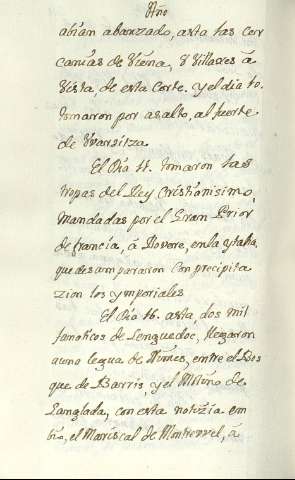 Año
abian abanzado, asta las cer
canias de Viena, y Villares á
vista, de esta Corte. y el dia 10.
tomaron por asalto, al fuerte
de Uvarsitza
El Dia 11. tomaron las
tropas del Rey Cristianisimo,
mandadas por el Gran Prior
de francia, á Rovore, en la ytalia,
que desampararon con precipita
zion los ymperiales
El Dia 16. asta, dos mil
fanaticos de Lenguedoc, llegaron
a una legua de Nimes, entre el Bos
que de Barris, y el Molino de
Langlada, con esta notizia em
bio, el Mariscal de Montrevel, á